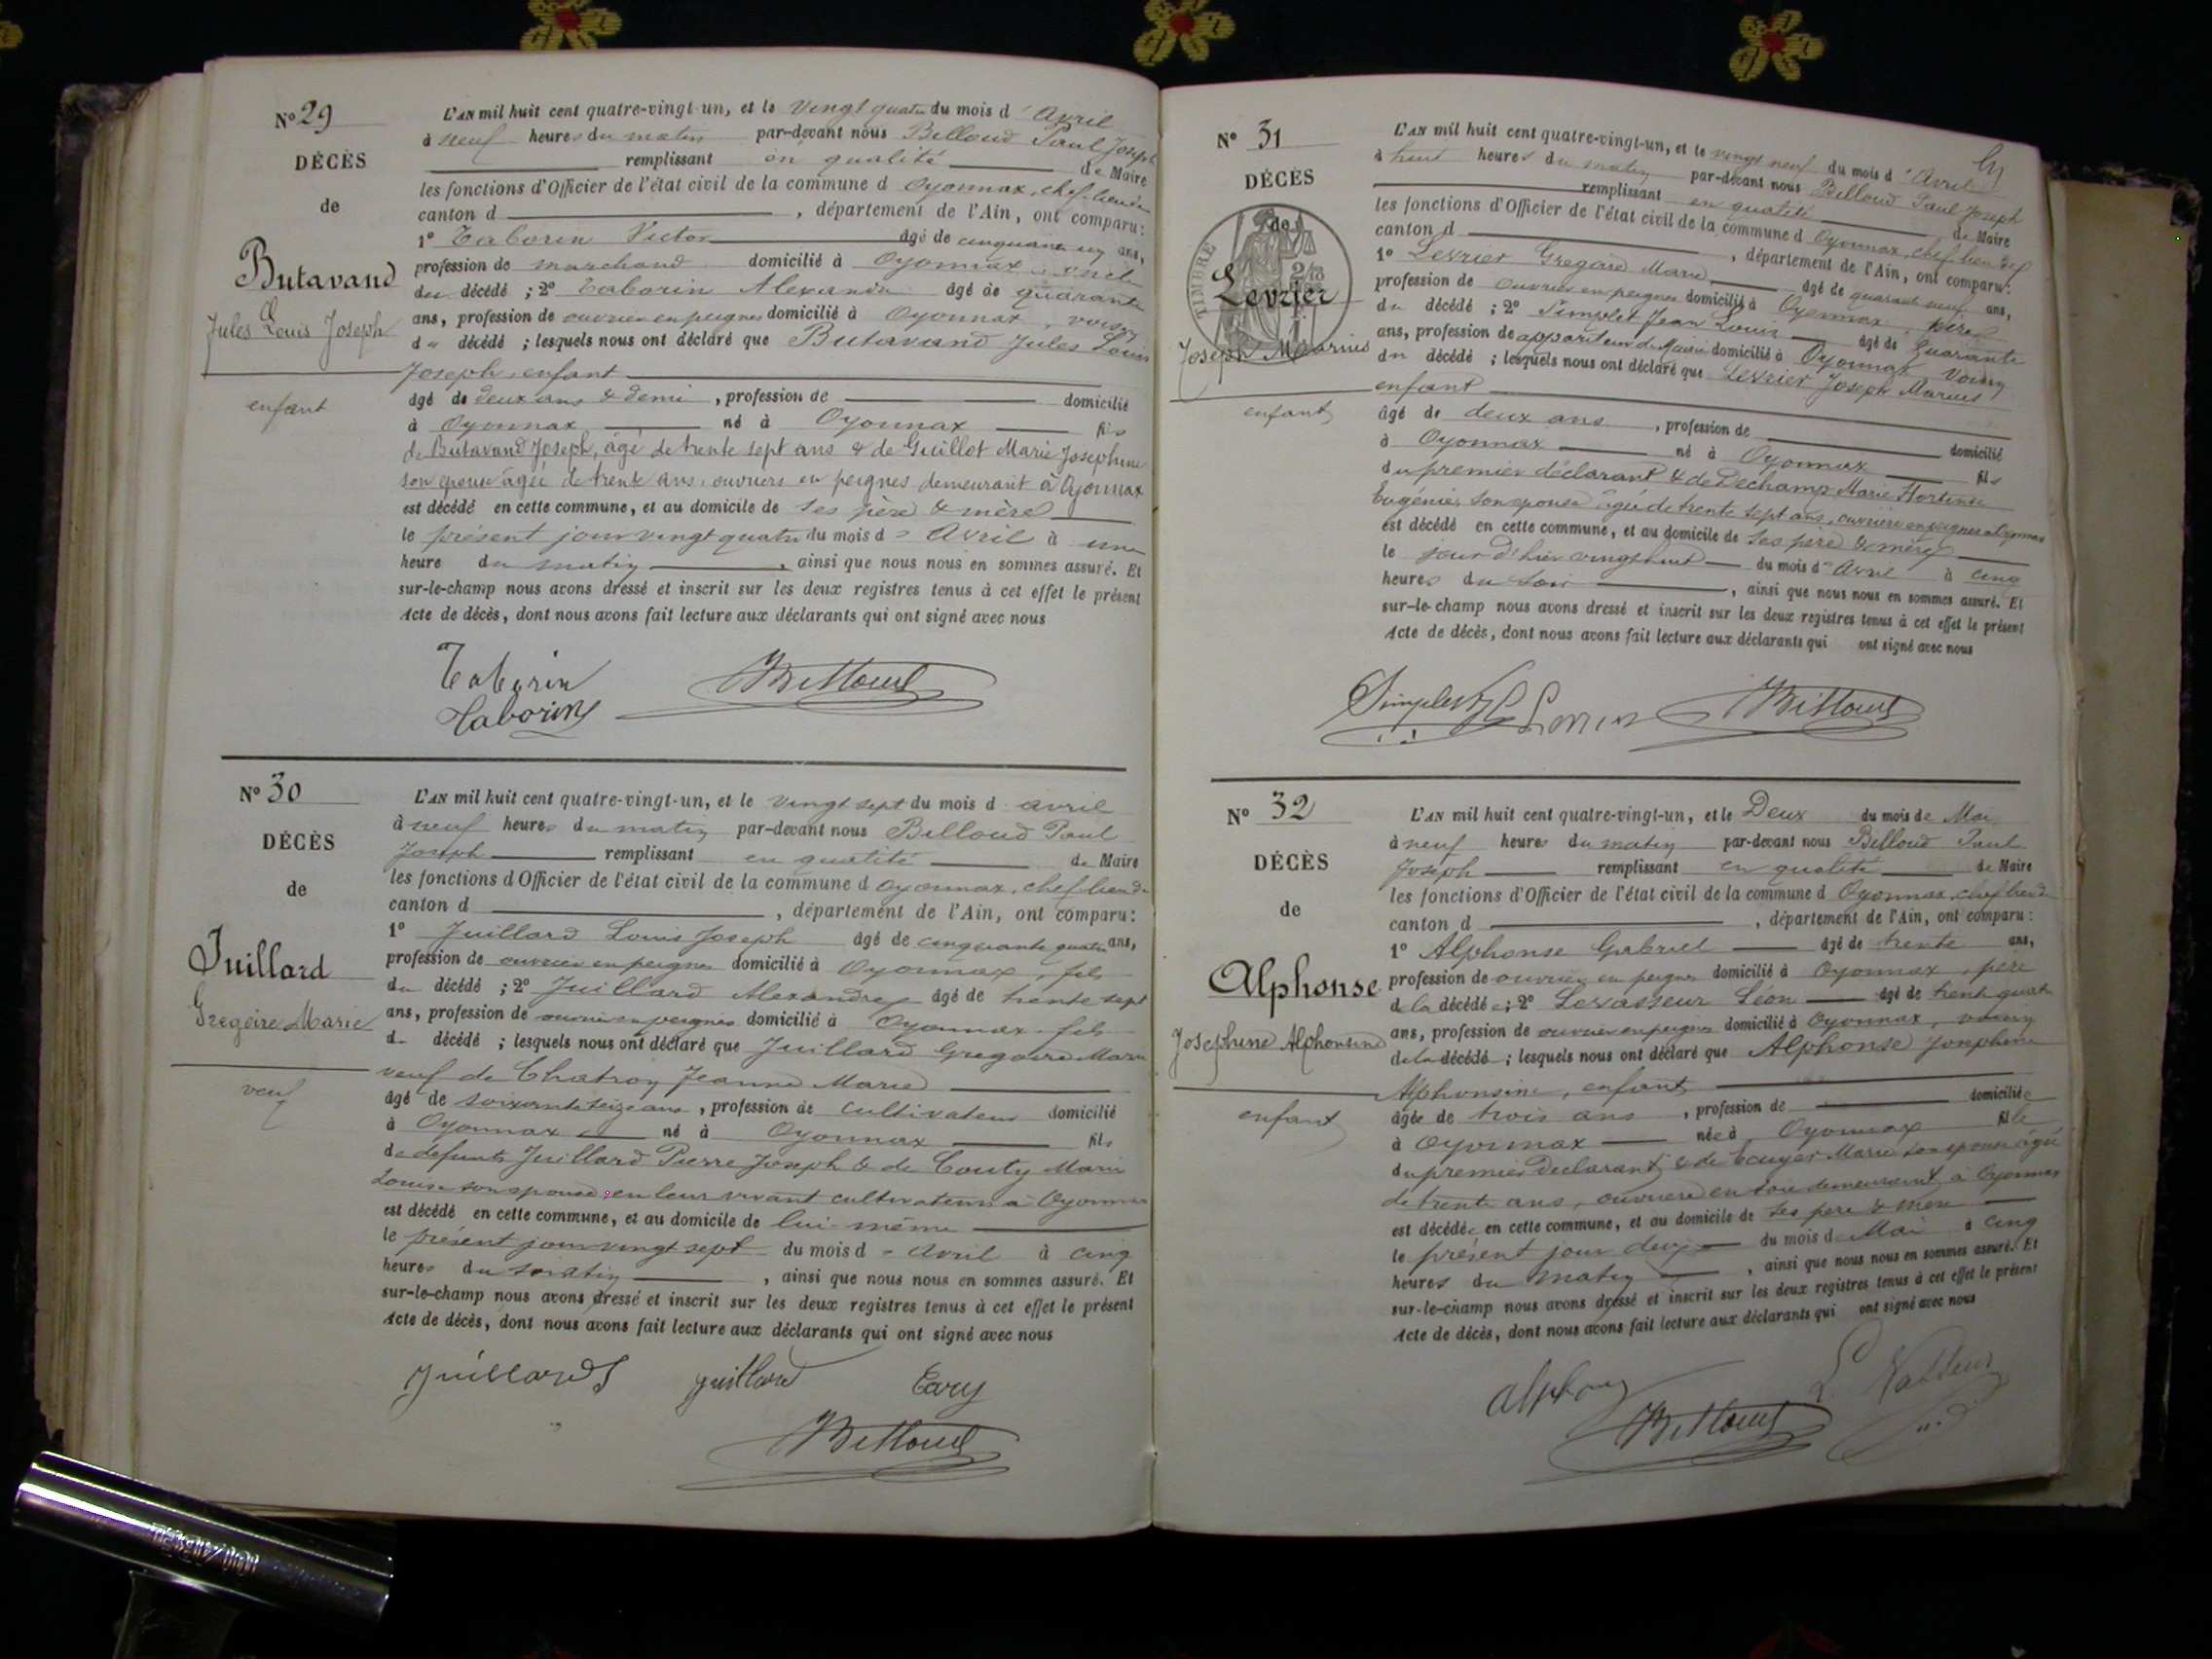 N° 29
DÉCÈS
de
Butavand
Jules Louis Joseph
enfant
L'AN mil huit cent quatre-vingt-un, et le vingt quatre du mois d'Avril
à neuf heures du matin par-devant nous Billoud Paul Joseph
remplissant en qualité de Maire
les fonctions d'Officier de l'état civil de la commune d Oyonnax, chef-lieu de
canton d , département de l'Ain, ont comparu:
1° Taborin Victor âgé de cinquante un ans,
profession de marchand domicilié à Oyonnax, oncle
du décédé ; 2° Taborin Alexandre âgé de quarante
ans, profession de ouvrier en peignes domicilié à Oyonnax, voisin
du décédé ; lesquels nous ont déclaré que Butavand Jules Louis
Joseph, enfant
âgé de deux ans & demi , profession de domicilié
à Oyonnax né à Oyonnax fils
de Butavand Joseph, âgé de trente sept ans & de Guillot Marie Josephine
son epouse âgée de trente ans, ouvriers en peignes demeurant à Oyonnax
est décédé en cette commune, et au domicile de ses père & mère
le présent jour vingt quatre du mois d'Avril à une
heure du matin , ainsi que nous nous en sommes assuré. Et
sur-le-champ nous avons dressé et inscrit sur les deux registres tenus à cet effet le présent
Acte de décès, dont nous avons fait lecture aux déclarants qui ont signé avec nous
Taborin
Taborin
Billoud
N° 30
DÉCÈS
de
Juillard
Gregoire Marie
veuf
L'AN mil huit cent quatre-vingt-un, et le vingt sept du mois d avril
à neuf heures du matin par-devant nous Billoud Paul
Joseph remplissant en qualité de Maire
les fonctions d'Officier de l'état civil de la commune d Oyonnax, chef lieu de
canton d , département de l'Ain, ont comparu:
1° Juillard Louis Joseph âgé de cinquante quatre ans,
profession de ouvrier en peignes domicilié à Oyonnax, fils
du décédé ; 2° Juillard Alexandre âgé de trente sept
ans, profession de ouvrier en peignes domicilié à Oyonnax fils
d décédé ; lesquels nous ont déclaré que Juillard Gregoire Marie
veuf de Chatron Jeanne Marie
âgé de soixante seize ans , profession de cultivateur domicilié
à Oyonnax né à Oyonnax fils
de defunts Juillard Pierre Joseph & de Couty Marie
Louise son epouse en leur vivant cultivateurs à Oyonnax
est décédé en cette commune, et au domicile de lui-même
le présent jour vingt sept du mois d'Avril à cinq
heures du matin , ainsi que nous nous en sommes assuré. Et
sur-le-champ nous avons dressé et inscrit sur les deux registres tenus à cet effet le présent
Acte de décès, dont nous avons fait lecture aux déclarants qui ont signé avec nous
Juillard Juillard
Billoud
N° 31
DÉCÈS
de
TIMBRE
Levrier
Joseph Marius
enfant
L'AN mil huit cent quatre-vingt-un, et le vingt neuf du mois d'Avril
à huit heures du matin par-devant nous Billoud Paul Joseph
remplissant en qualité de Maire
les fonctions d'Officier de l'état civil de la commune d Oyonnax, chef lieu de
canton d , département de l'Ain, ont comparu:
1° Levrier Gregoire Marie âgé de quarante neuf ans,
profession de ouvrier en peignes domicilié à Oyonnax, père
du décédé ; 2° Simplet Jean Louis âgé de Quarante
ans, profession de appariteur de Mairie domicilié à Oyonnax voisin
du décédé ; lesquels nous ont déclaré que Levrier Joseph Marius
enfant
âgé de deux ans , profession de domicilié
à Oyonnax né à Oyonnax fils
du premier déclarant & de Dechamp Marie Hortense
Eugénie, son epouse âgée de trente sept ans, ouvrière en peignes à Oyonnax
est décédé en cette commune, et au domicile de ses père & mère
le jour d'hier vingt huit du mois d'Avril à cinq
heures du soir , ainsi que nous nous en sommes assuré. Et
sur-le-champ nous avons dressé et inscrit sur les deux registres tenus à cet effet le présent
Acte de décès, dont nous avons fait lecture aux déclarants qui ont signé avec nous
Simplet Levrier Billoud
N° 32
DÉCÈS
de
Alphonse
Josephine Alphonsine
enfant
L'AN mil huit cent quatre-vingt-un, et le Deux du mois de Mai
à neuf heures du matin par-devant nous Billoud Paul
Joseph remplissant en qualité de Maire
les fonctions d'Officier de l'état civil de la commune d Oyonnax, chef lieu de
canton d , département de l'Ain, ont comparu:
1° Alphonse Gabriel âgé de trente ans,
profession de ouvrier en peignes domicilié à Oyonnax, père
de la décédée ; 2° Levasseur Léon âgé de trente quatre
ans, profession de ouvrier en peignes domicilié à Oyonnax, voisin
de la décédée ; lesquels nous ont déclaré que Alphonse Josephine
Alphonsine, enfant
âgée de trois ans , profession de domiciliée
à Oyonnax née à Oyonnax fille
du premier Declarant & de Ecuyer Marie son epouse âgée
de trente ans, ouvrière en soie demeurant à Oyonnax
est décédée en cette commune, et au domicile de ses père & mère
le présent jour deux du mois de Mai à cinq
heures du matin , ainsi que nous nous en sommes assuré. Et
sur-le-champ nous avons dressé et inscrit sur les deux registres tenus à cet effet le présent
Acte de décès, dont nous avons fait lecture aux déclarants qui ont signé avec nous
Billoud